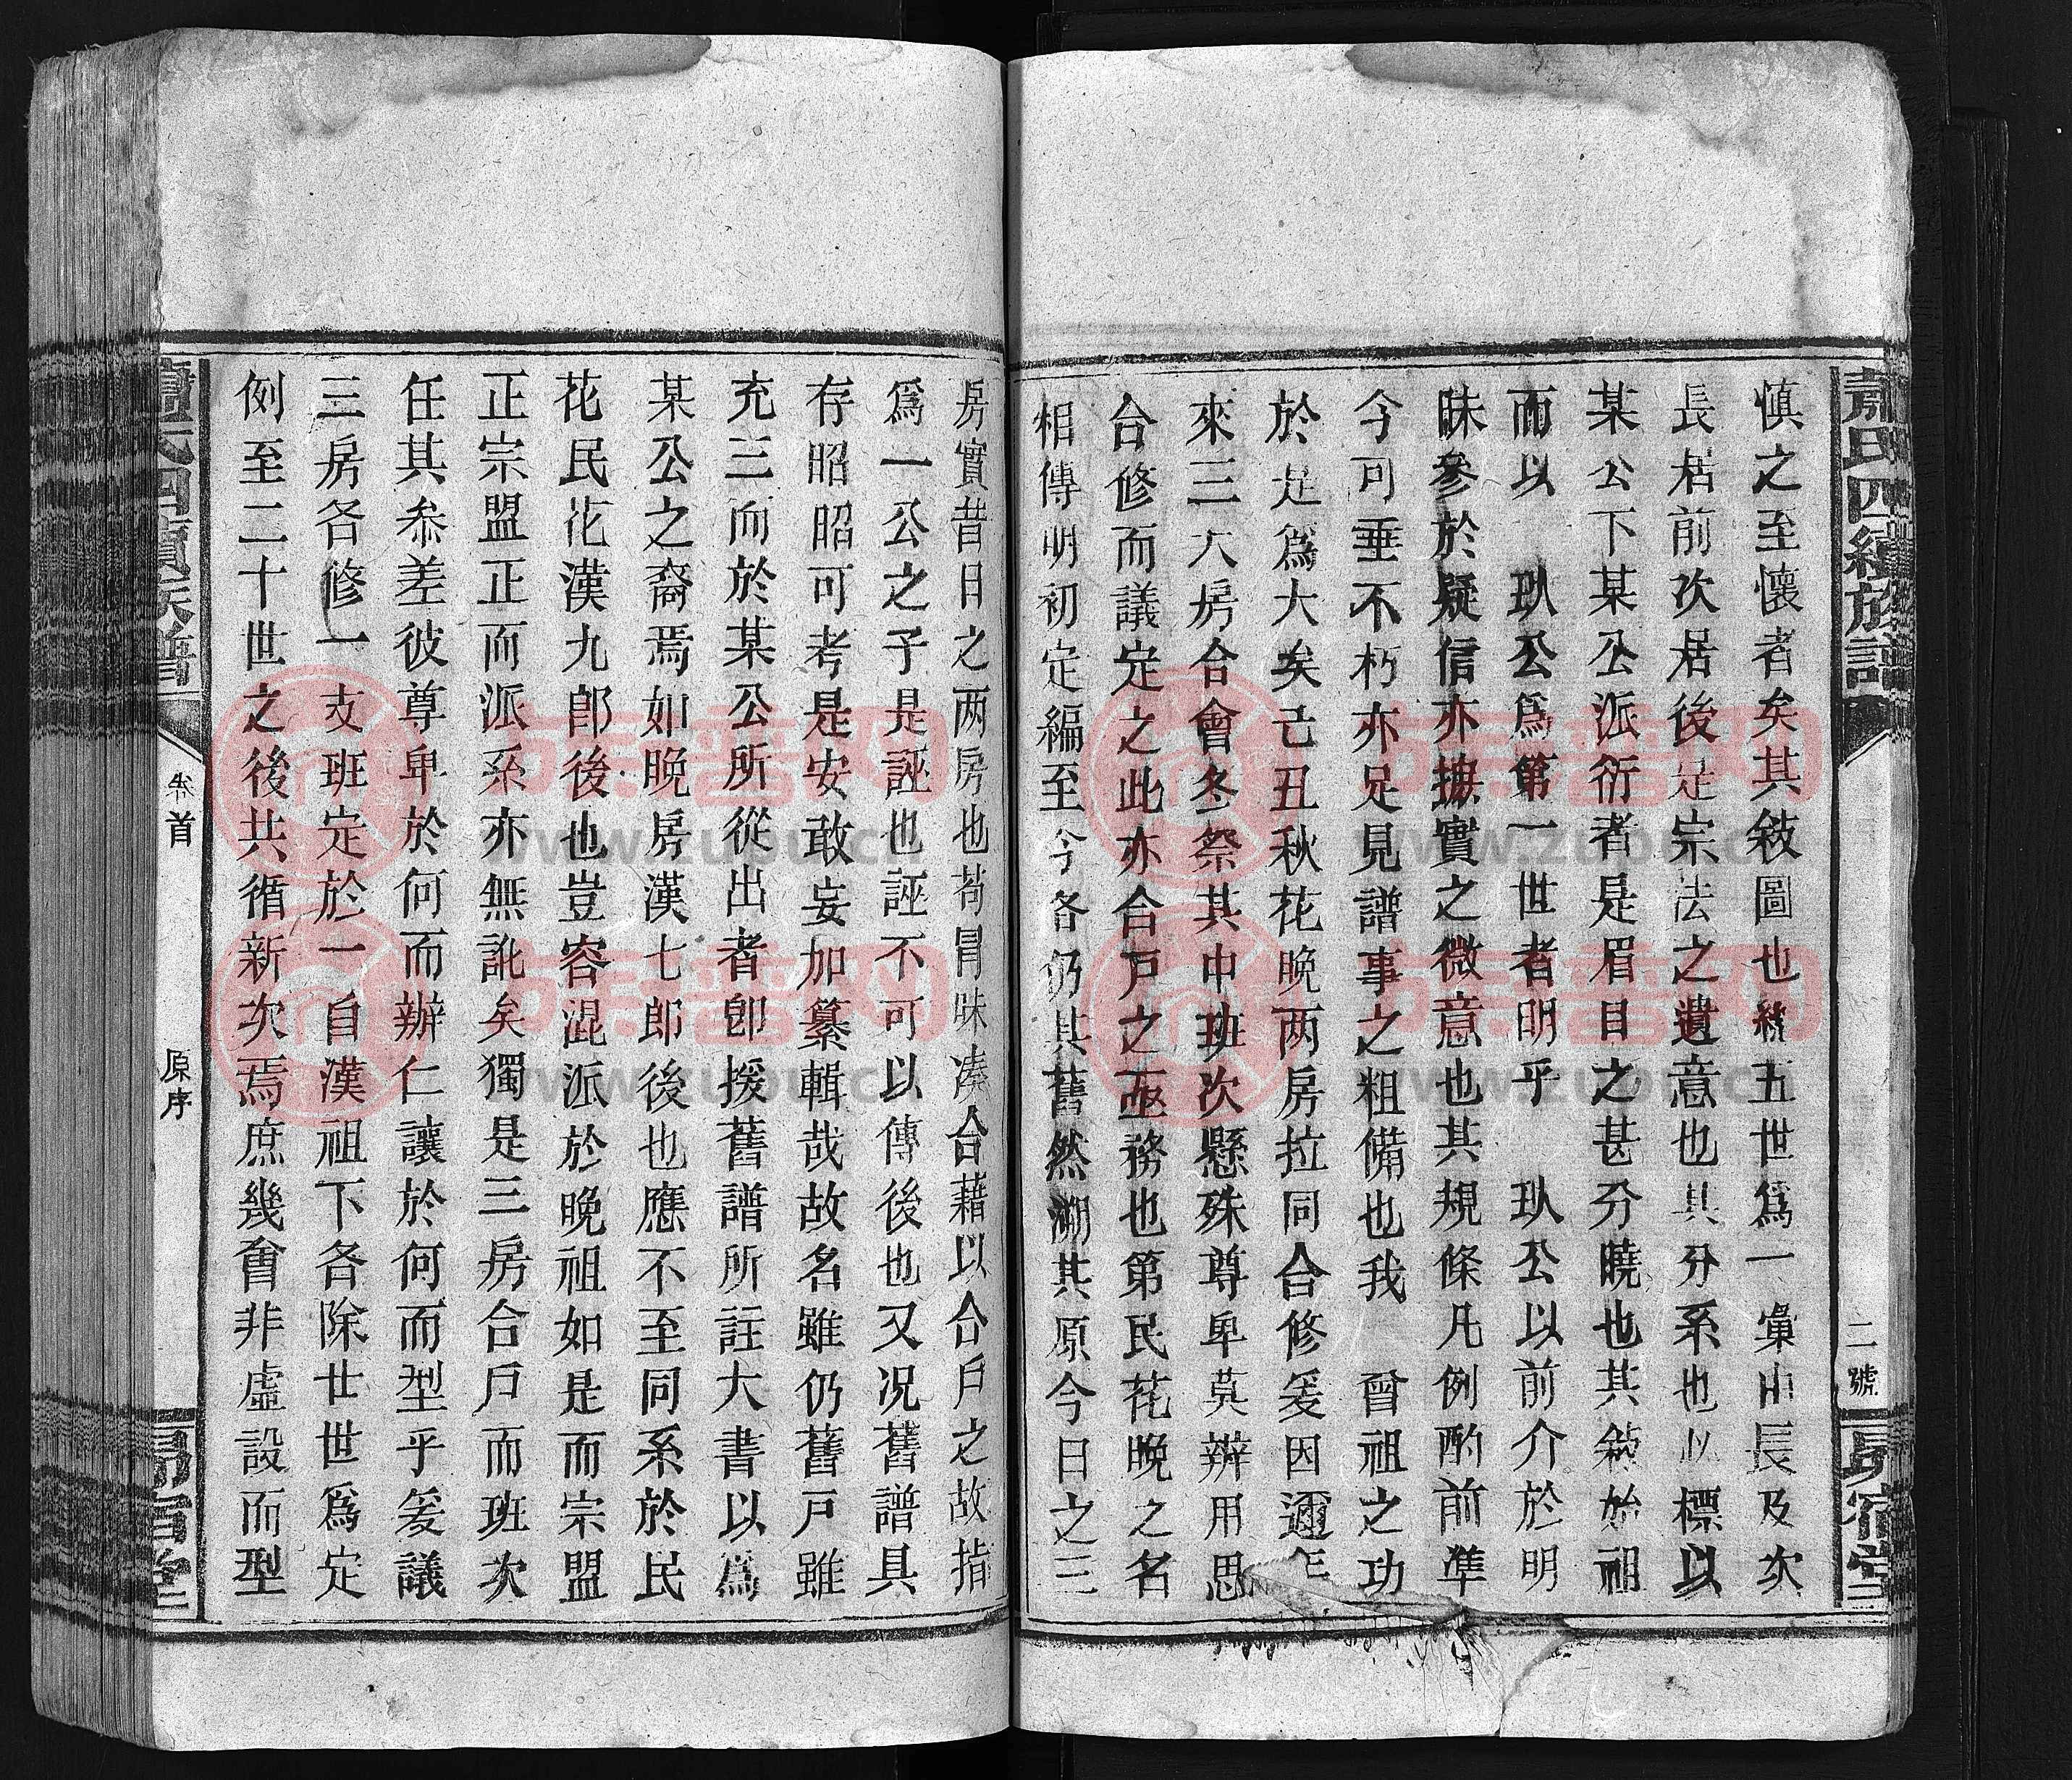 蕭氏四續族譜
二號
慎之至懷者矣其敍圖也統五世爲一彙由長及次
長居前次居後是宗法之遺意也其分系也必標以
某公下某公派衍者是眉目之甚分曉也其敍始祖
而以 玖公爲第一世者明乎 玖公以前介於明
昧參於疑信亦據實之微意也其規條凡例酌前準
今可垂不朽亦足見譜事之粗備也我 曾祖之功
於是爲大矣己丑秋花晚两房拉同合修爰因邇年
來三大房合會冬祭其中班次懸殊尊卑莫辨用思
合修而議定之此亦合戸之亟務也第民花晚之名
相傳明初定編至今各仍其舊然溯其原今日之三
房實昔日之两房也苟冒昧湊合藉以合戸之故指
爲一公之子是誣也誣不可以傳後也又況舊譜具
存昭昭可考是安敢妄加纂輯哉故名雖仍舊戸雖
充三而於某公所從出者卽援舊譜所註大書以爲
某公之裔焉如晚房漢七郎後也應不至同系於民
花民花漢九郎後也豈容混派於晚祖如是而宗盟
正宗盟正而派系亦無訛矣獨是三房合戸而班次
任其叅差彼尊卑於何而辦仁讓於何而型乎爰議
三房各修一支班定於一自漢祖下各除廿世爲定
例至二十世之後共循新次焉庶幾會非虛設而型
卷首
原序